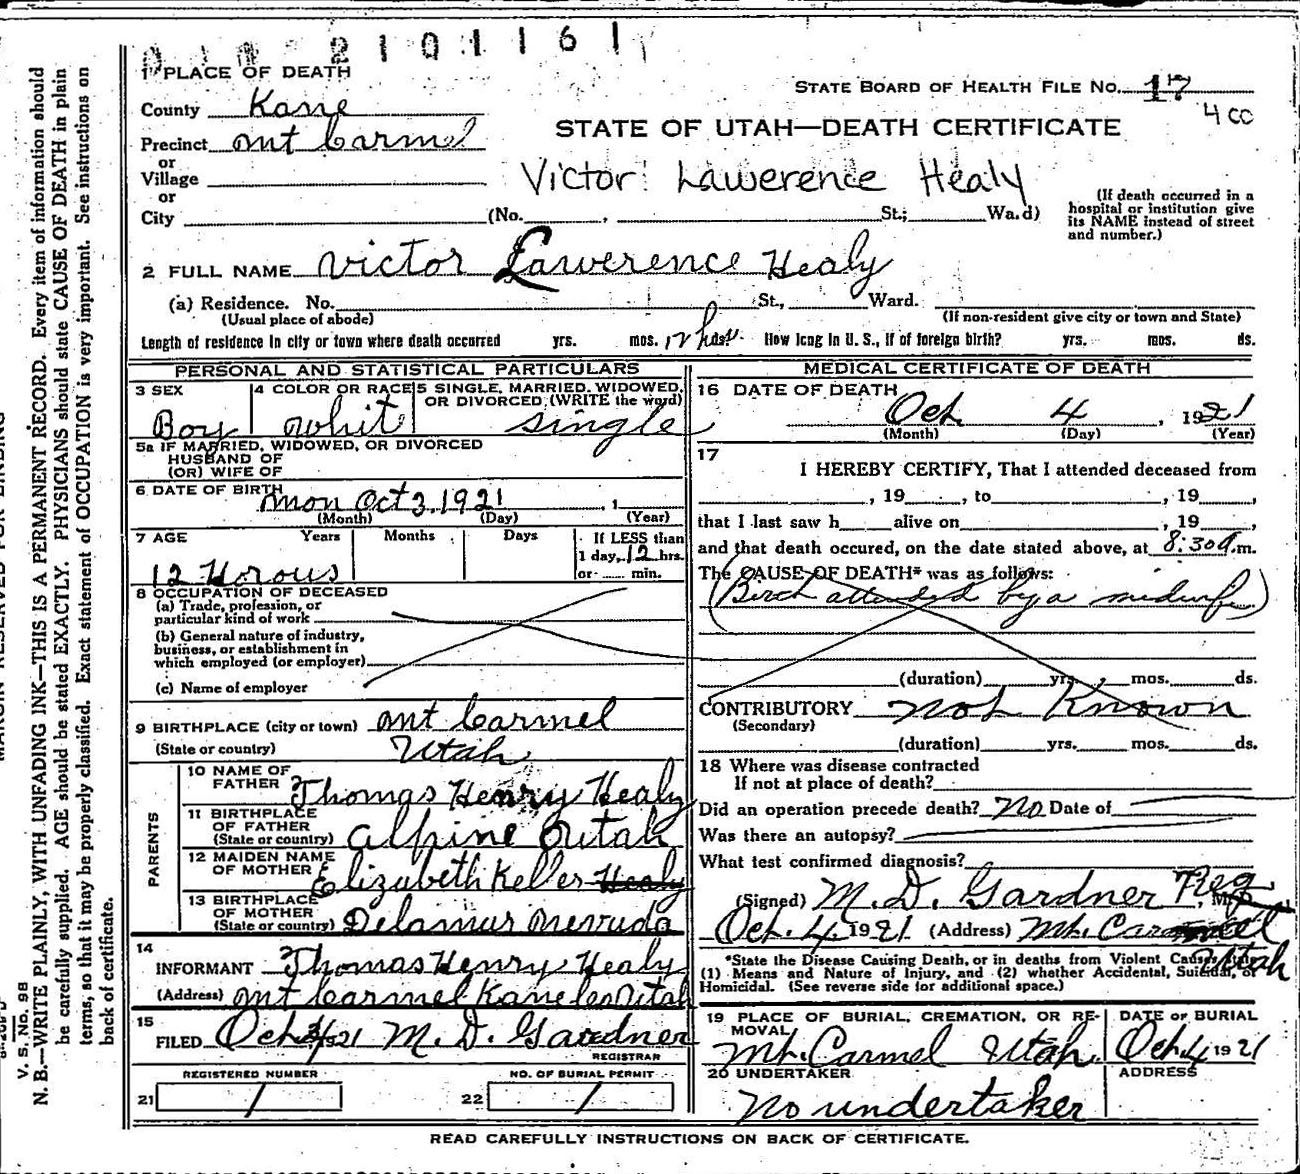 2101161
1 PLACE OF DEATH
STATE BOARD OF HEALTH FILE No. 17
County Kane
4 cc
STATE OF UTAH—DEATH CERTIFICATE
Precinct Mt Carmel
or
Village
Victor Lawerence Healy
or
City (No. , St.; Wa.d)
(If death occurred in a
hospital or institution give
its NAME instead of street
and number.)
2 FULL NAME Victor Lawerence Healy
(a) Residence. No. St., Ward.
(Usual place of abode) (If non-resident give city or town and State)
Length of residence in city or town where death occurred yrs. mos. 12 hrs ds. How long in U. S., if of foreign birth? yrs. mos. ds.
PERSONAL AND STATISTICAL PARTICULARS
3 SEX Boy
4 COLOR OR RACE whit
5 SINGLE, MARRIED, WIDOWED,
OR DIVORCED, (WRITE the word)
single
5a IF MARRIED, WIDOWED, OR DIVORCED
HUSBAND OF
(OR) WIFE OF
6 DATE OF BIRTH Mon Oct 3. 1921 , 1
(Month) (Day) (Year)
7 AGE Years Months Days If LESS than
1 day, 12 hrs.
or ...... min.
12 Horous
8 OCCUPATION OF DECEASED
(a) Trade, profession, or
particular kind of work
(b) General nature of industry,
business, or establishment in
which employed (or employer)
(c) Name of employer
9 BIRTHPLACE (city or town) Mt Carmel
(State or country) Utah
PARENTS
10 NAME OF
FATHER Thomas Henry Healy
11 BIRTHPLACE
OF FATHER
(State or country) Alpine Utah
12 MAIDEN NAME
OF MOTHER Elizabeth Keller Healy
13 BIRTHPLACE
OF MOTHER
(State or country) Delamar Nevada
14
INFORMANT Thomas Henry Healy
(Address) Mt Carmel Kane Co Utah
15
FILED Oct 21 M. D. Gardner
REGISTRAR
REGISTERED NUMBER NO. OF BURIAL PERMIT
21 / 22 /
MEDICAL CERTIFICATE OF DEATH
16 DATE OF DEATH
Oct. 4, 1921
(Month) (Day) (Year)
17
I HEREBY CERTIFY, That I attended deceased from
, 19 , to , 19 ,
that I last saw h alive on , 19 ,
and that death occured, on the date stated above, at 8:30 A.m.
The CAUSE OF DEATH* was as follows:
(Birth attended by a midwife)
(duration) yrs. mos. ds.
CONTRIBUTORY Not Known
(Secondary)
(duration) yrs. mos. ds.
18 Where was disease contracted
If not at place of death?
Did an operation precede death? No Date of
Was there an autopsy?
What test confirmed diagnosis?
(Signed) M. D. Gardner Reg, M.D.
Oct. 4, 1921 (Address) Mt. Carmel
Utah
*State the Disease Causing Death, or in deaths from Violent Causes, state
(1) Means and Nature of Injury, and (2) whether Accidental, Suicidal, or
Homicidal. (See reverse side for additional space.)
19 PLACE OF BURIAL, CREMATION, OR RE-
MOVAL
Mt. Carmel Utah.
DATE OF BURIAL
Oct. 4 1921
20 UNDERTAKER
No undertaker
ADDRESS
READ CAREFULLY INSTRUCTIONS ON BACK OF CERTIFICATE.
MARGIN RESERVED FOR BINDING
V. S. No. 98
N. B.—WRITE PLAINLY, WITH UNFADING INK—THIS IS A PERMANENT RECORD. Every item of information should
be carefully supplied. AGE should be stated EXACTLY. PHYSICIANS should state CAUSE OF DEATH in plain
terms, so that it may be properly classified. Exact statement of OCCUPATION is very important. See instructions on
back of certificate.